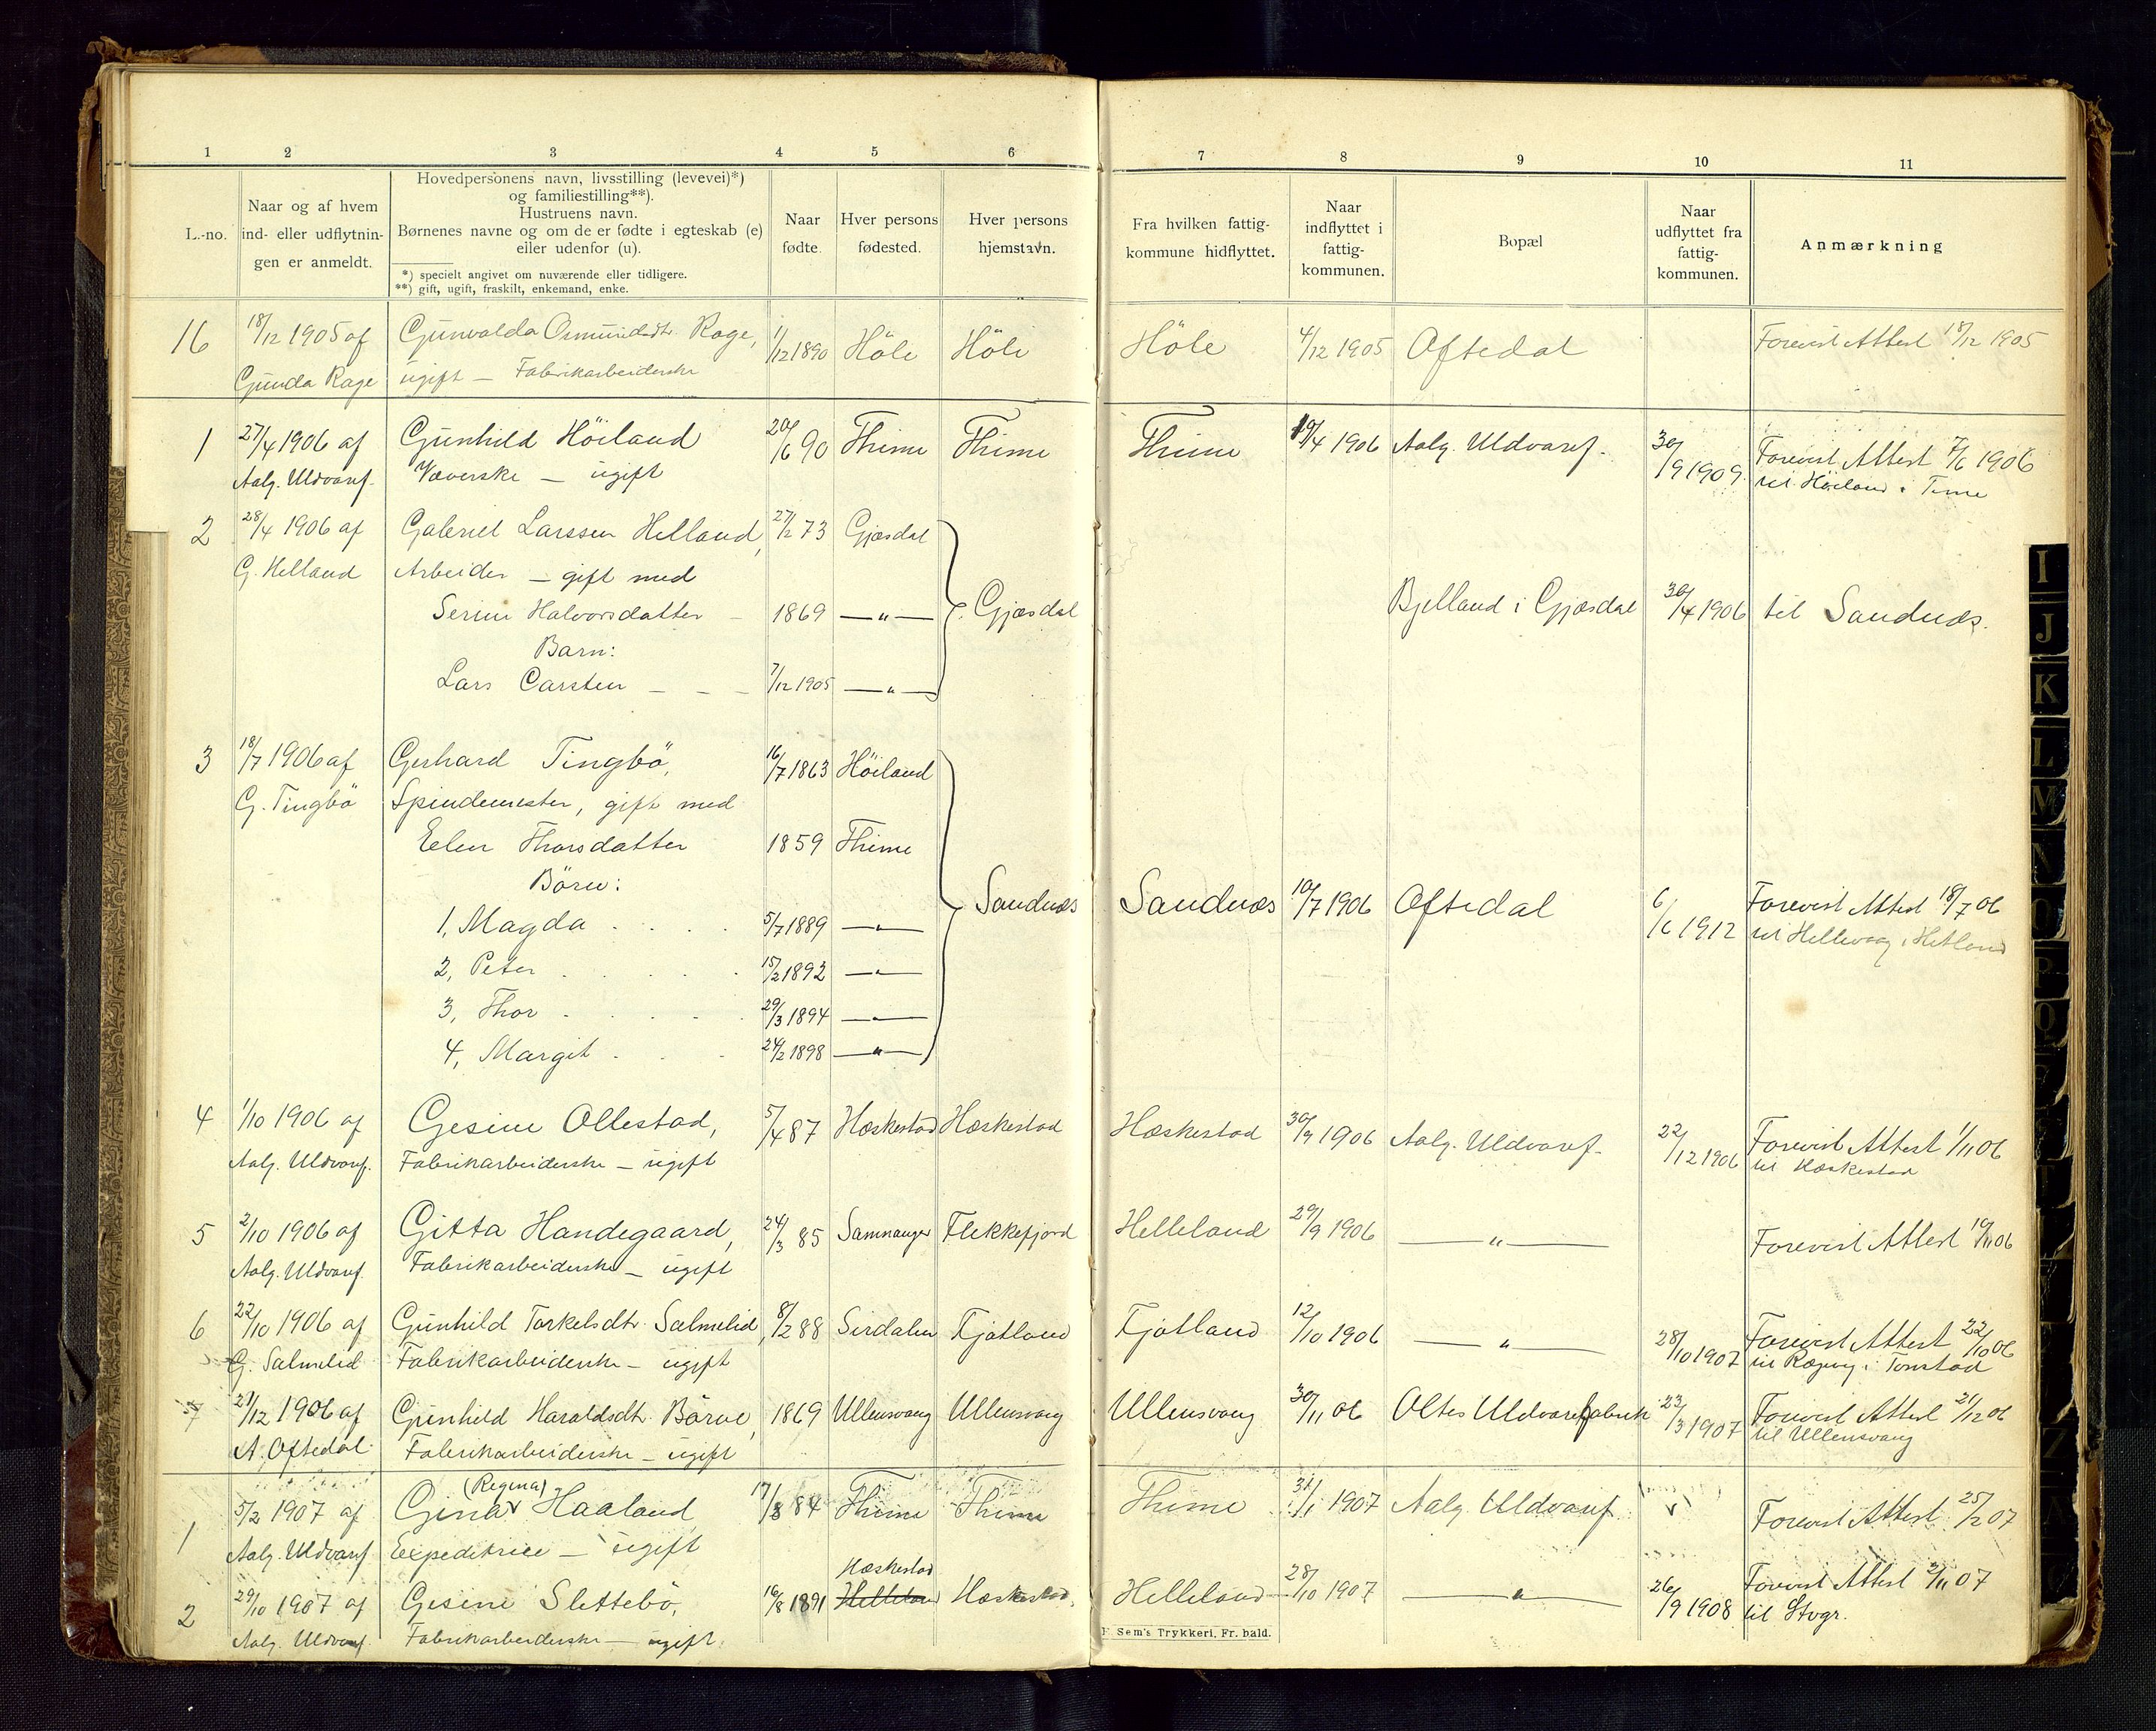 1 2 3 4 5 6 7 8 9 10 11
L.-no.
Naar og af hvem
ind- eller udflytnin-
gen er anmeldt.
Hovedpersonens navn, livsstilling (levevei)*)
og familiestilling**).
Hustruens navn.
Børnenes navne og om de er fødte i egteskab (e)
eller udenfor (u).
*) specielt angivet om nuværende eller tidligere.
**) gift, ugift, fraskilt, enkemand, enke.
Naar
fødte.
Hver persons
fødested.
Hver persons
hjemstavn.
Fra hvilken fattig-
kommune hidflyttet.
Naar
indflyttet i
fattig-
kommunen.
Bopæl
Naar
udflyttet fra
fattig-
kommunen.
Anmærkning
16 18/12 1905 af Gunvalda Osmundsdtr Rage, 1/12 1890 Höle Höle Höle 4/12 1905 Oftedal Forevist Attest 18/12 1905
Gunda Rage ugift — Fabrikarbeiderske
1 27/4 1906 af Gunhild Höiland 20/6 90 Thime Thime Thime 19/4 1906 Aalg. Uldvaref. 30/9 1909 Forevist Attest 7/6 1906
Aalg. Uldvaref. Væverske — ugift til Höiland i Time
2 28/4 1906 af Gabriel Larssen Helland, 27/2 73 Gjæsdal
G. Helland Arbeider — gift med
Serine Halvorsdatter – 1869 —"— Gjæsdal Bjelland i Gjæsdal 30/4 1906 til Sandnæs.
Barn:
Lars Carsten – – – 7/12 1905 —"—
3 18/7 1906 af Gerhard Tingbö, 16/7 1863 Höiland
G. Tingbö Spindemester, gift med
Elen Thorsdatter 1859 Thime
Börn:
Sandnæs Sandnæs 10/7 1906 Oftedal 6/6 1912 Forevist Attest 18/7 06
til Hillevaag i Hetland
1, Magda . . . . 5/7 1889 —"—
2, Peter . . . . 15/2 1892 —"—
3, Thor . . . . 29/3 1894 —"—
4, Margit . . . 24/2 1898 —"—
4 1/10 1906 af Gesine Ollestad, 5/4 87 Hæskestad Hæskestad Hæskestad 30/9 1906 Aalg. Uldvaref. 22/12 1906 Forevist Attest 1/11 06
Aalg. Uldvaref. Fabrikarbeiderske — ugift til Hæskestad
5 2/10 1906 af Gitta Handegaard, 24/3 85 Samnanger Flekkefjord Helleland 29/9 1906 —"— Forevist Attest 10/11 06
Aalg. Uldvaref. Fabrikarbeiderske — ugift
6 22/10 1906 af Gunhild Torkelsdtr. Salmelid, 8/2 88 Sirdalen Fjotland Fjotland 12/10 1906 —"— 28/10 1907 Forevist Attest 22/10 06
G. Salmelid Fabrikarbeiderske — ugift til i Tonstad
7 21/12 1906 af Gunhild Haraldsdtr. Börve, 1869 Ullensvang Ullensvang Ullensvang 30/11 06 Oltes Uldvarefabrik 23/3 1907 Forevist Attest 21/12 06
A. Oftedal Fabrikarbeiderske — ugift til Ullensvang
(Regina)
1 5/2 1907 af Gina Haaland 17/8 84 Thime Thime Thime 31/1 1907 Aalg. Uldvaref. v Forevist Attest 25/2 07
Aalg. Uldvaref. Expeditrice — ugift
Hæskestad
2 29/10 1907 af Gesine Slettebö, 16/8 1891 Helleland Hæskestad. Helleland 28/10 1907 —"— 26/9 1908 Forevist Attest 2/11 07
Aalg. Uldvaref. Fabrikarbeiderske — ugift. til Stvgr.
F. Sem's Trykkeri, Fr. hald.
I
J
K
L
M
N
O
P
Q